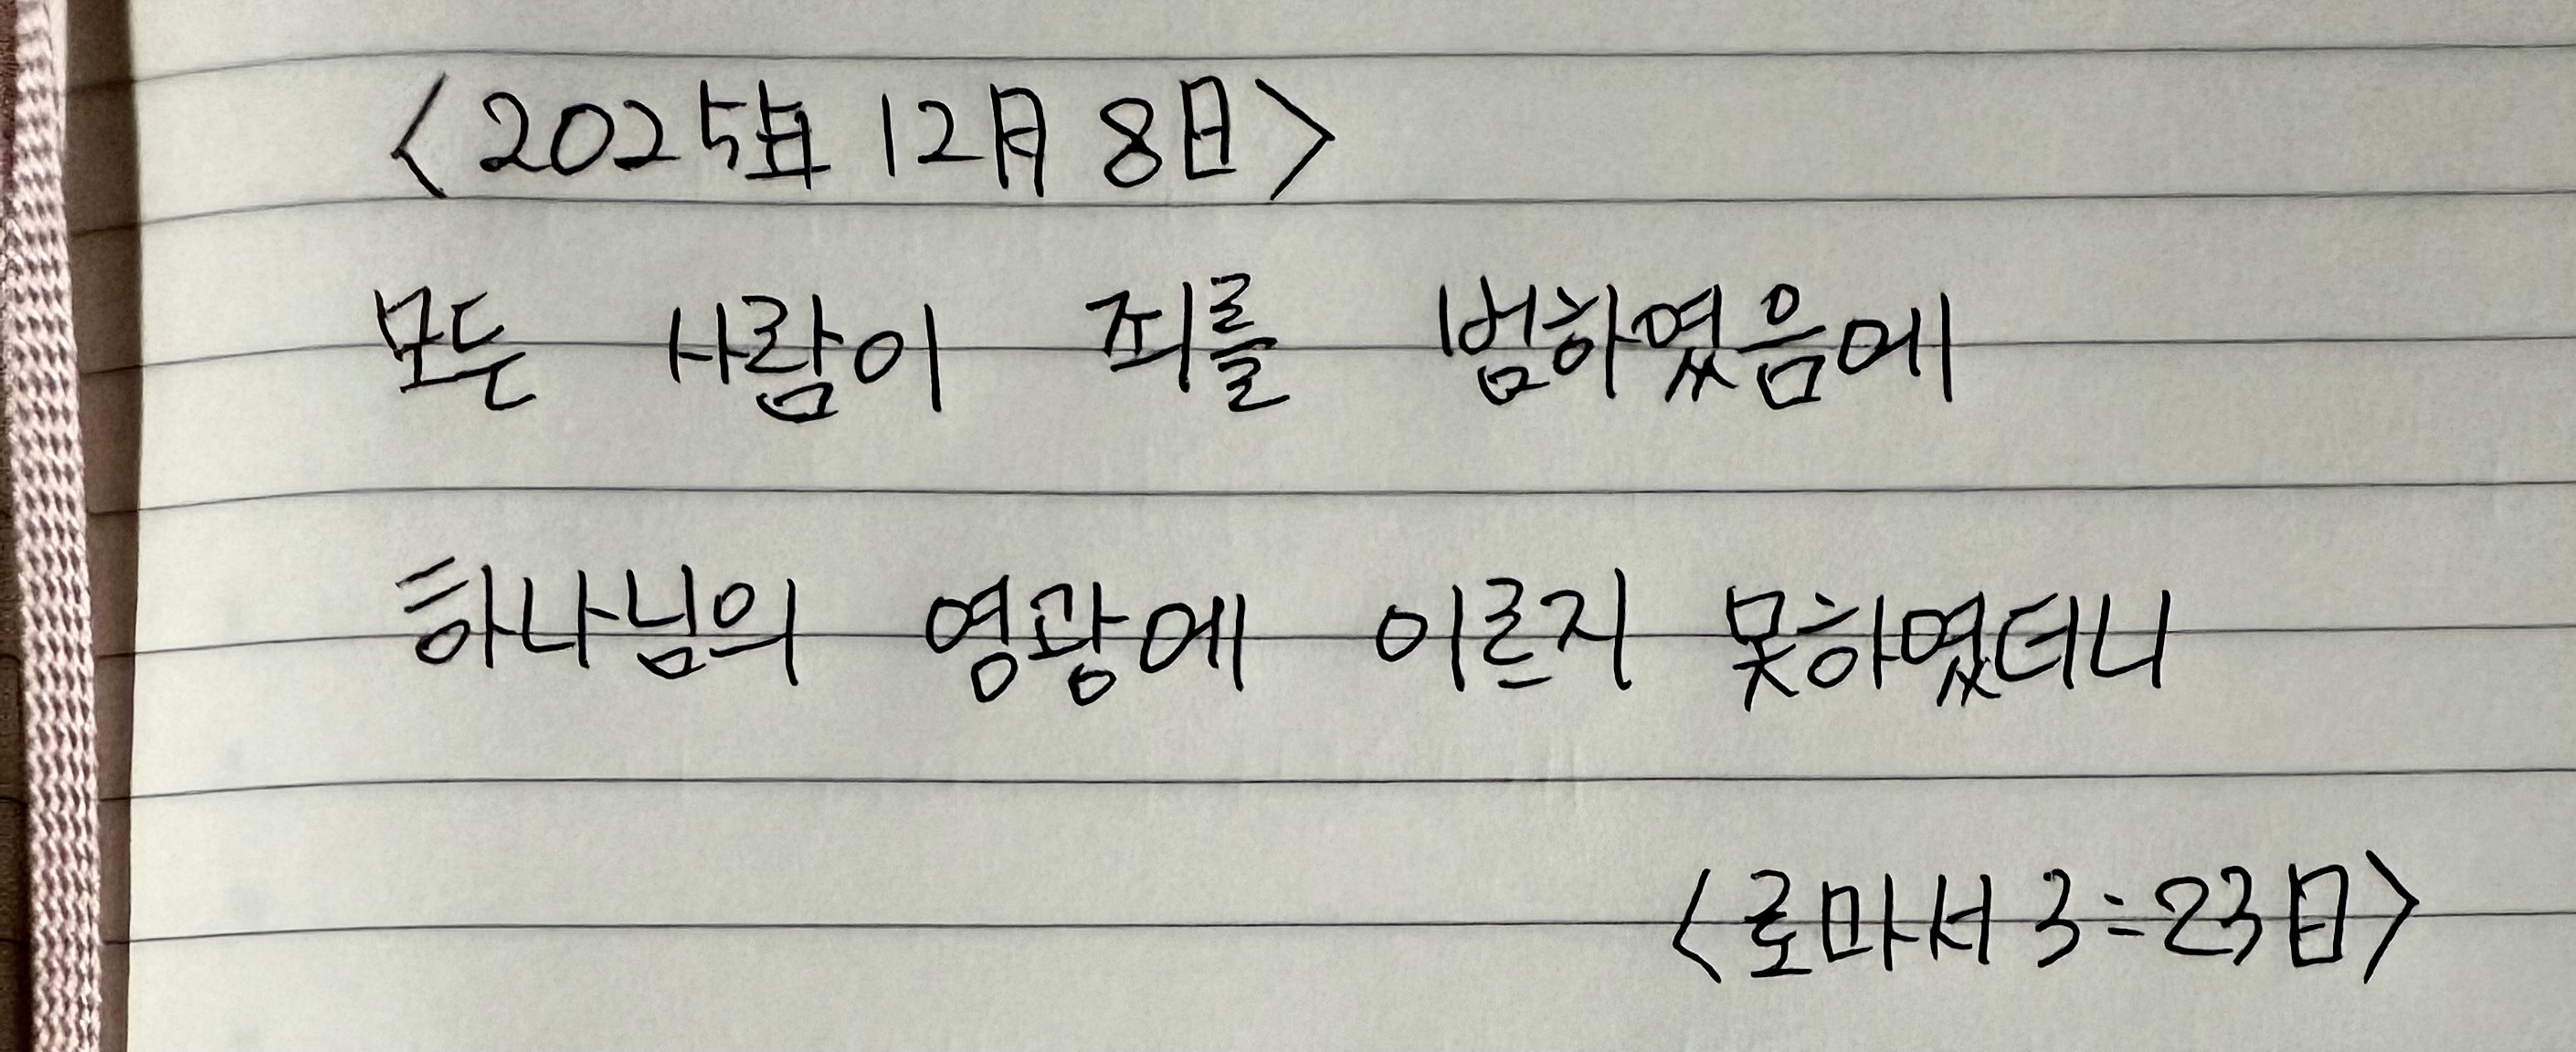 <2025年 12月 8日>
모든 사람이 죄를 범하였음에
하나님의 영광에 이르지 못하였더니
<로마서 3:23日>